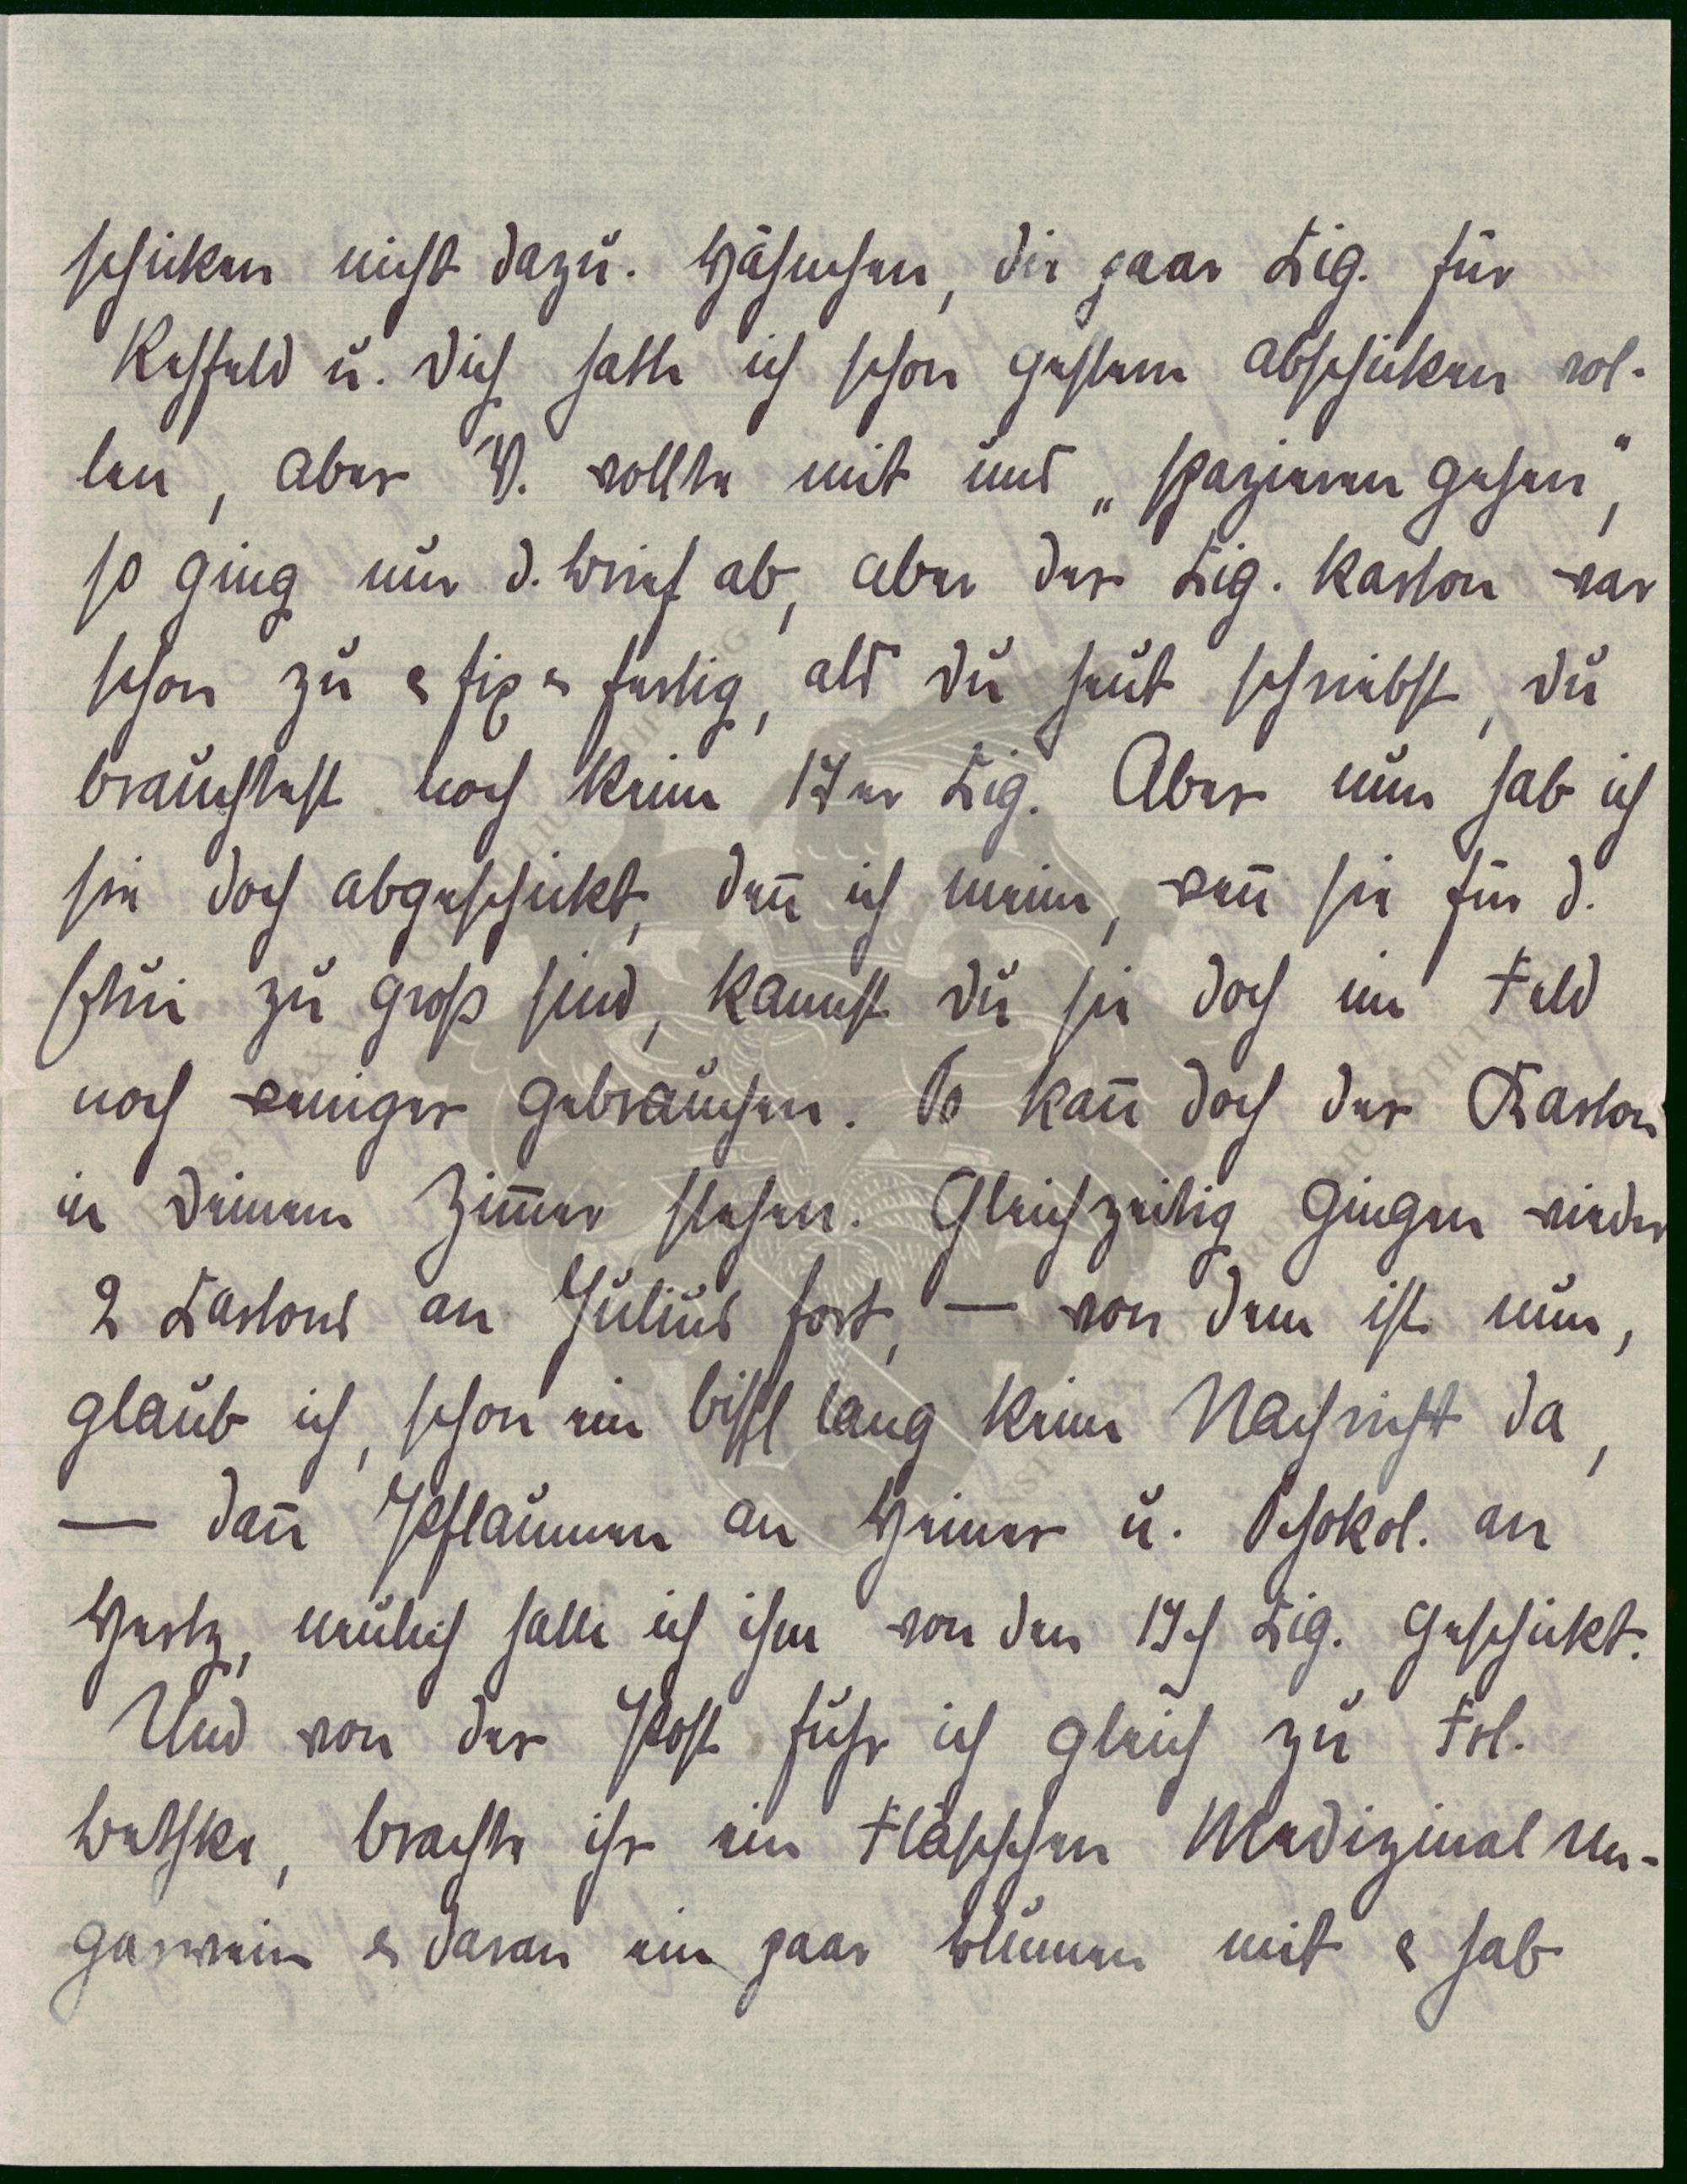 schicken nicht dazu. Hähnchen, die paar Zig. für
Rehfeld u. Dich hatte ich schon gestern abschicken wol-
len, aber V. wollte mit und „spazieren gehen“,
so ging nur d. Brief ab, aber der Zig. Karton war
schon zu & fix & fertig, als Du heut schriebst, Du
brauchtest noch keine 17er Zig. Aber nun hab ich
sie doch abgeschickt, den̄ ich meine, wen̄ sie für d.
Etui zu groß sind, kannst Du sie doch im Feld
noch weniger gebrauchen. So kan̄ doch der Karton
in Deinem Zim̄er stehen. Gleichzeitig gingen wieder
2 Kartons an Julius fort, — von dem ist nun,
glaub ich, schon ein bissl lang keine Nachricht da,
— dan̄ Pflaumen an Heiner u. Schokol. an
Hertz, neulich hatte ich ihm von den Zig. geschickt.
Und von der Post fuhr ich gleich zu Frl.
Bethke, brachte ihr ein Fläschchen Medizinal Un-
garwein & daran ein paar Blumen mit & hab